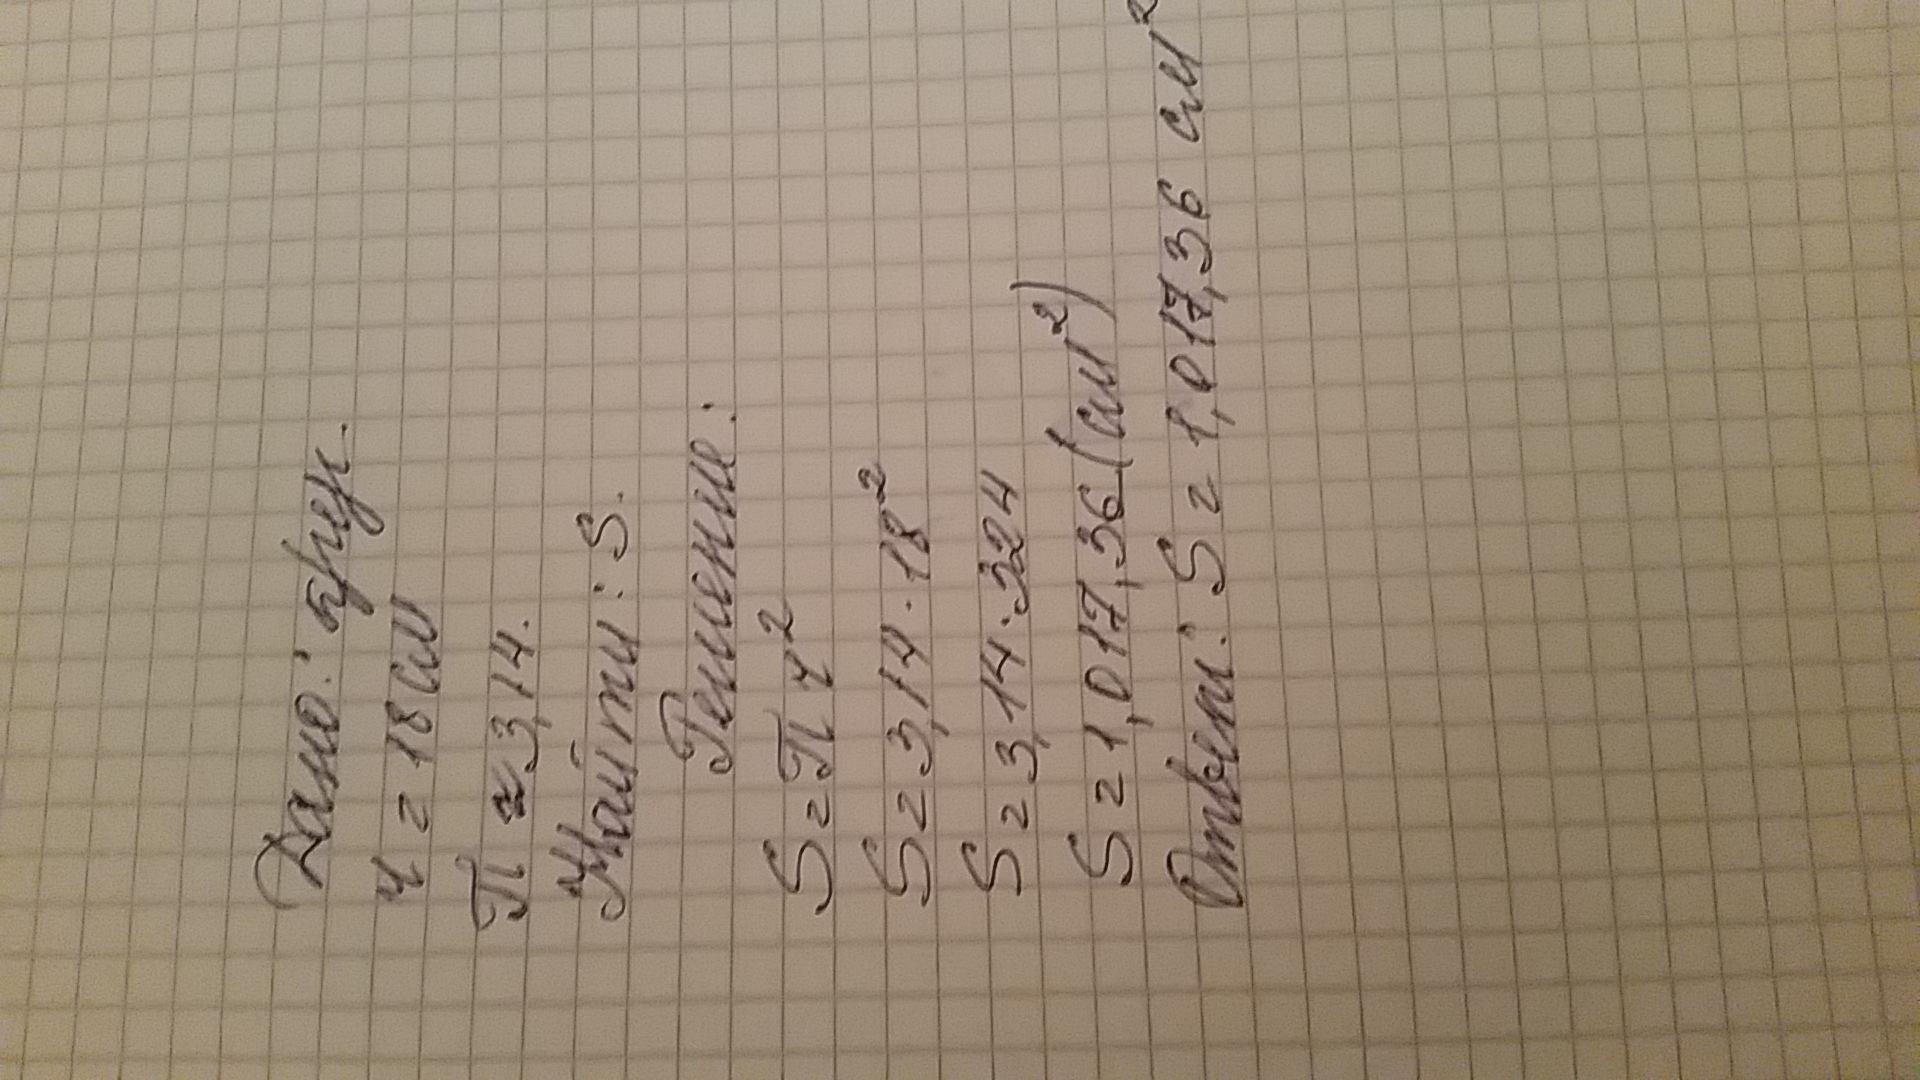 Дано: круг.
r = 18 см
π ≈ 3,14.
Найти: S.
Решение:
S = π r²
S = 3,14 · 18²
S = 3,14 · 324
S = 1,017,36 (см²)
Ответ: S = 1,017,36 см²